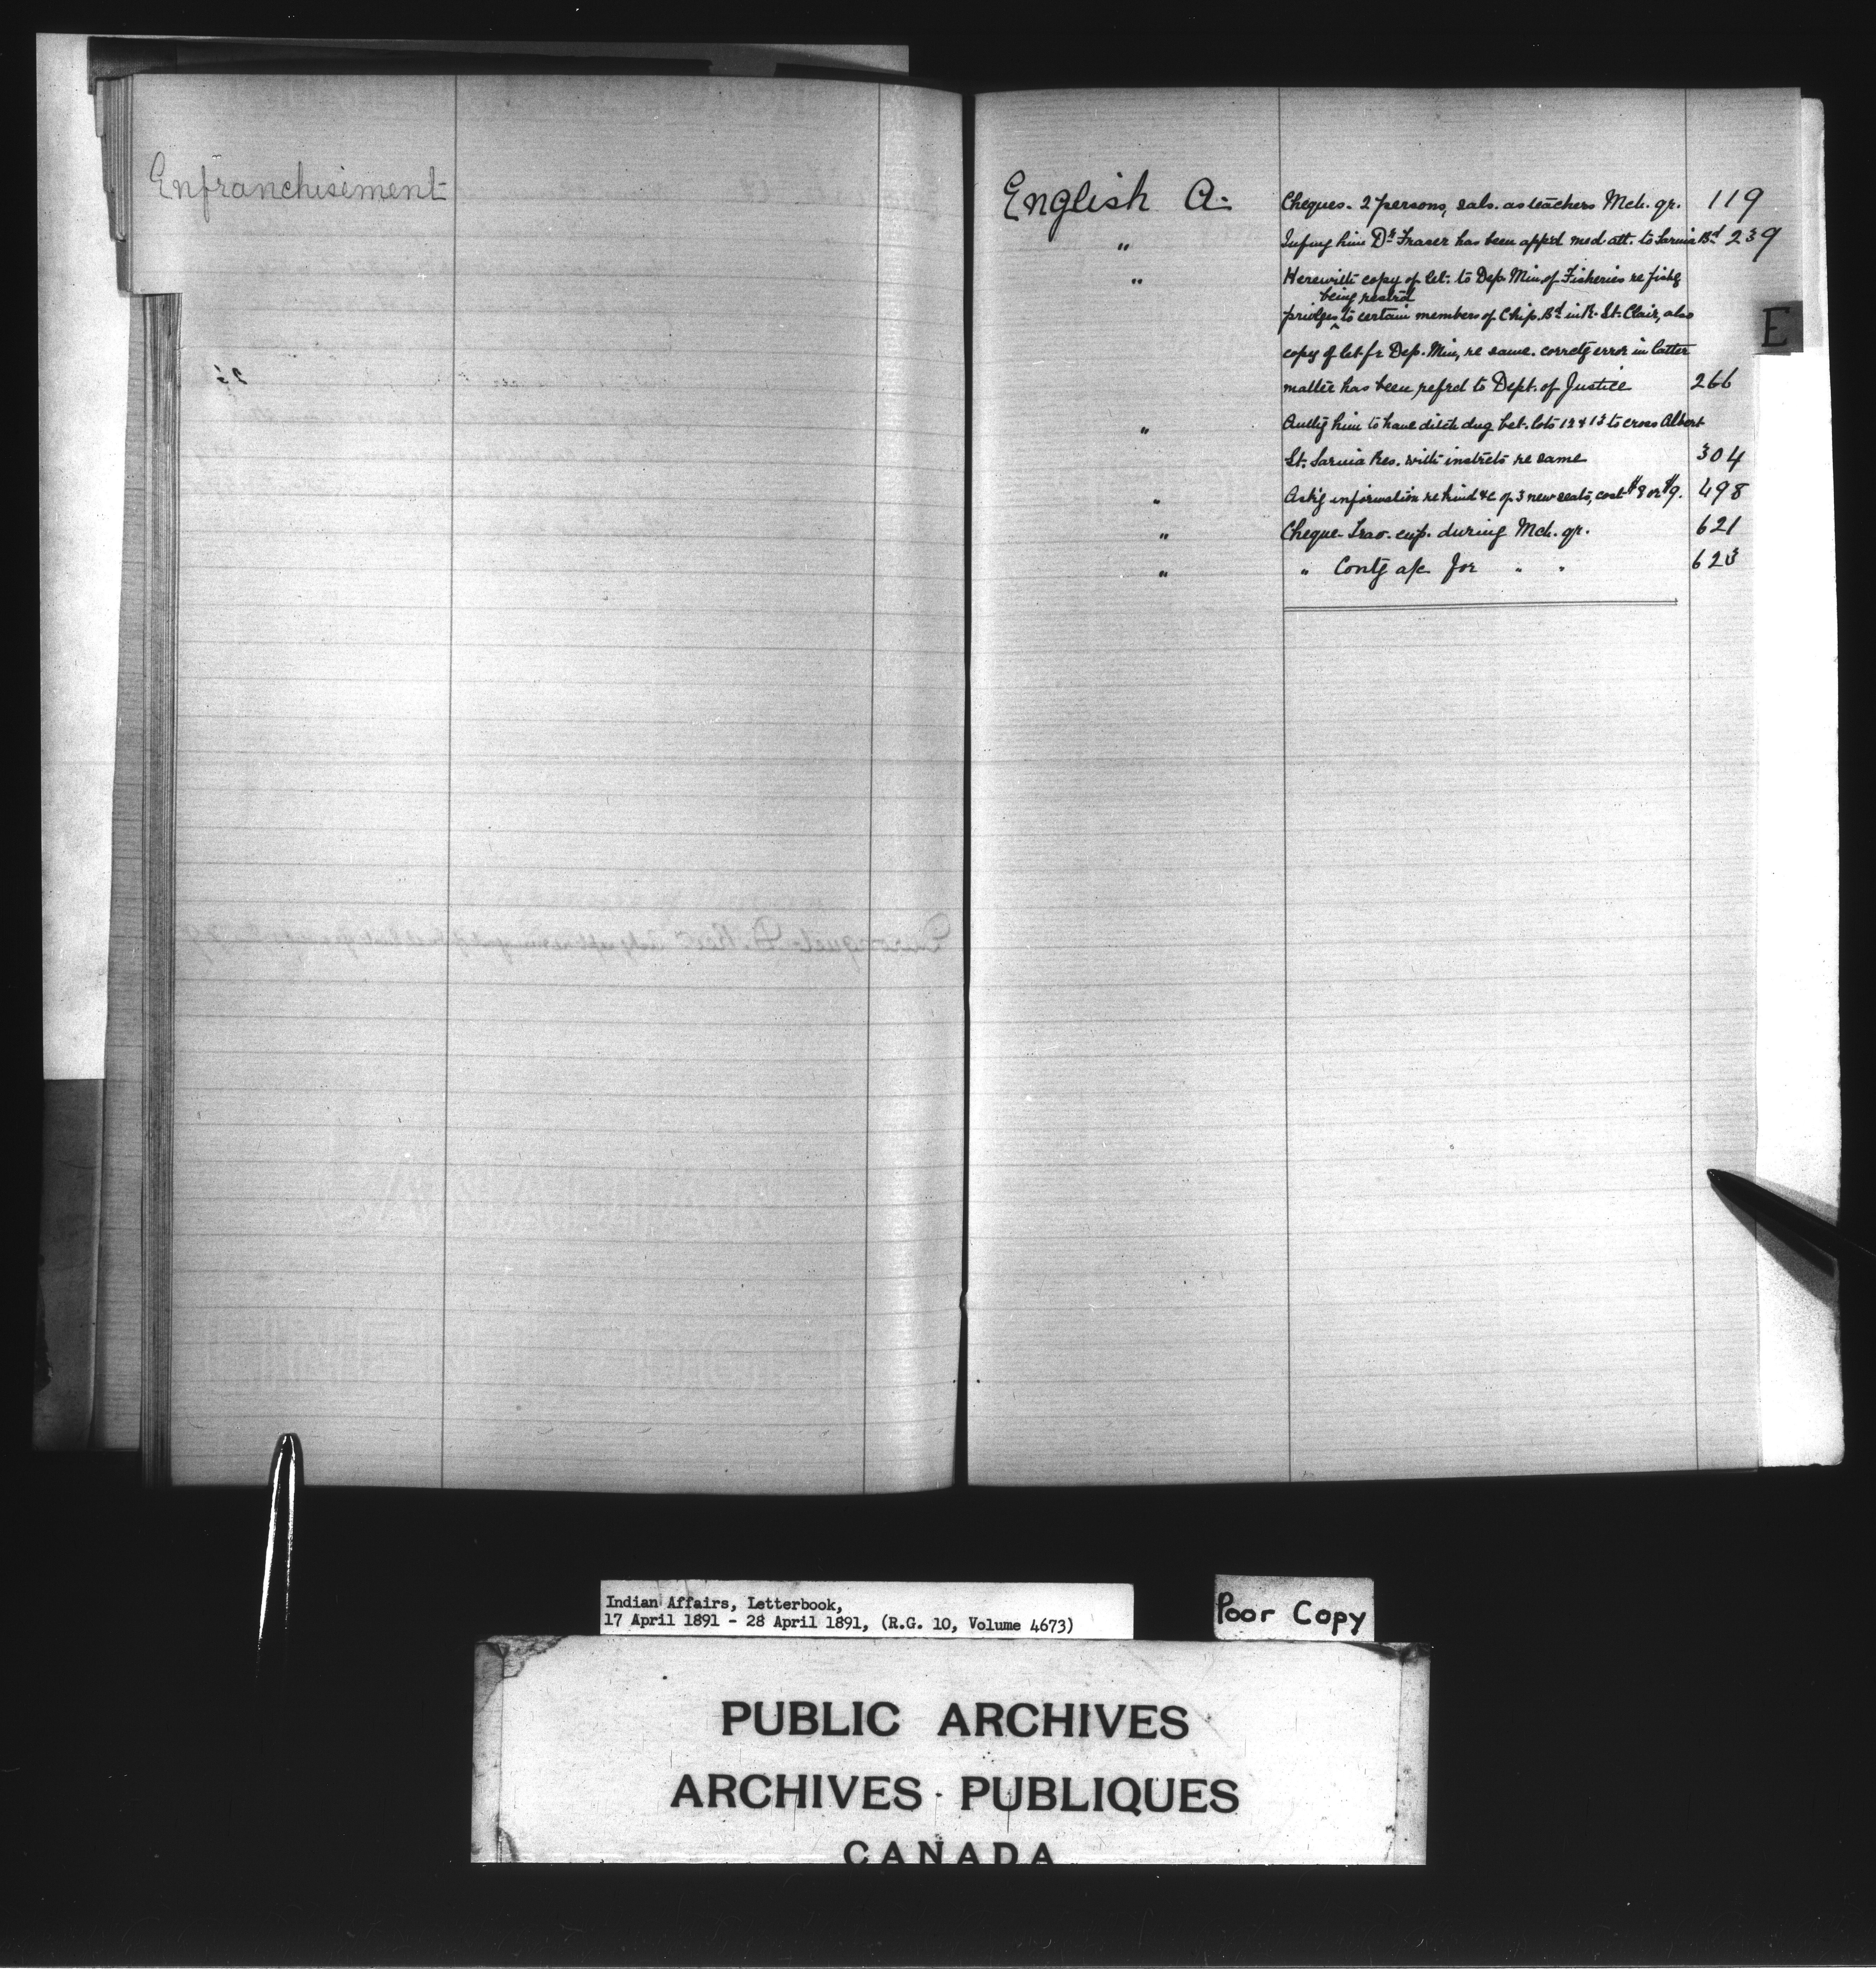 Enfranchisement
English A. Cheques. 2 persons, sals. as teachers Mch. qr. 119
" Infmg him Dr. Fraser has been app'd med att. to Sarnia Bd 239
" Herewith copy of let. to Dep. Min of Fisheries re fishg
being restrd
privlges to certain members of Chip. Bd in R. St. Clair, also
copy of let. fr Dep. Min, re same. corretg error in latter
matter has been refrd to Dept. of Justice 266
" Authg him to have ditch dug bet. lots 12 & 13 to cross Albert
St. Sarnia Res. with instrcts re same 304
" Ask'g information re kind &c of 3 new seats, cost $8 or $9. 498
" Cheque Trav. exp. during Mch. qr. 621
" " Contg a/c for " " 623
E
Indian Affairs, Letterbook,
17 April 1891 - 28 April 1891, (R.G. 10, Volume 4673)
Poor Copy
PUBLIC ARCHIVES
ARCHIVES PUBLIQUES
CANADA